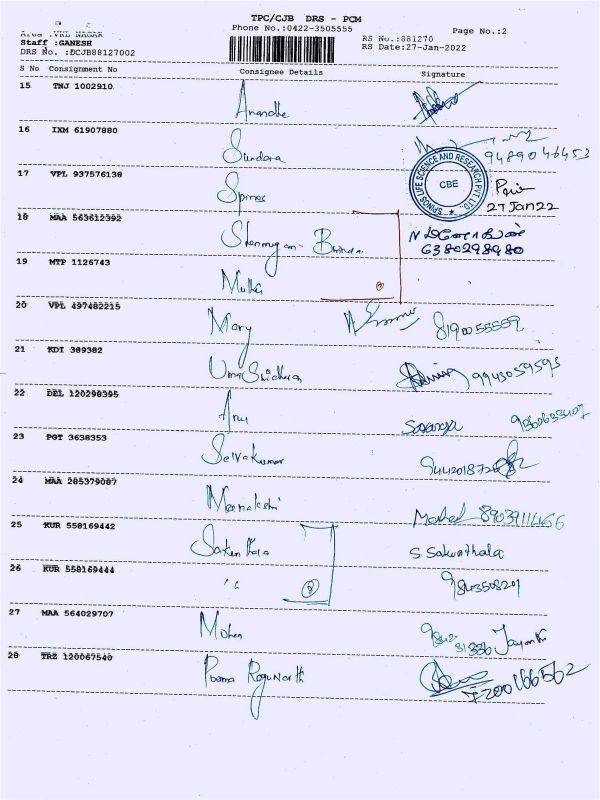 TPC/CJB DRS - PCM
Phone No.:0422-3505555
Area :VKL NAGAR
Staff :GANESH
DRS No. :DCJB88127002
RS No.:881270 Page No.:2
RS Date:27-Jan-2022
S No Consignment No Consignee Details Signature
15 TNJ 1002910 Anandhe
16 IXM 61907880 Sundara
9489046453
17 VPL 937576138 Spinos
SPINOS LIFE SCIENCE AND RESEARCH PVT. LTD.
CBE
27 Jan 22
18 MAA 563612392 Shanmugam
6380298980
19 MTP 1126743 Muthu
2
20 VPL 497482215 Mary 8190055559
21 KDI 389382 Uma Sridharan 9943059593
22 DEL 120298395 Anu
23 PGT 3638353 Selvakumar
24 MAA 285379087 Meenakshi
25 KUR 558169442 Sakunthala S. Sakunthala
26 KUR 558169444 " 2 9843508201
27 MAA 564029707 Mohan 9842
31336 Jayanthi
28 TRZ 120067540 Poorna Rogunath
7200166562